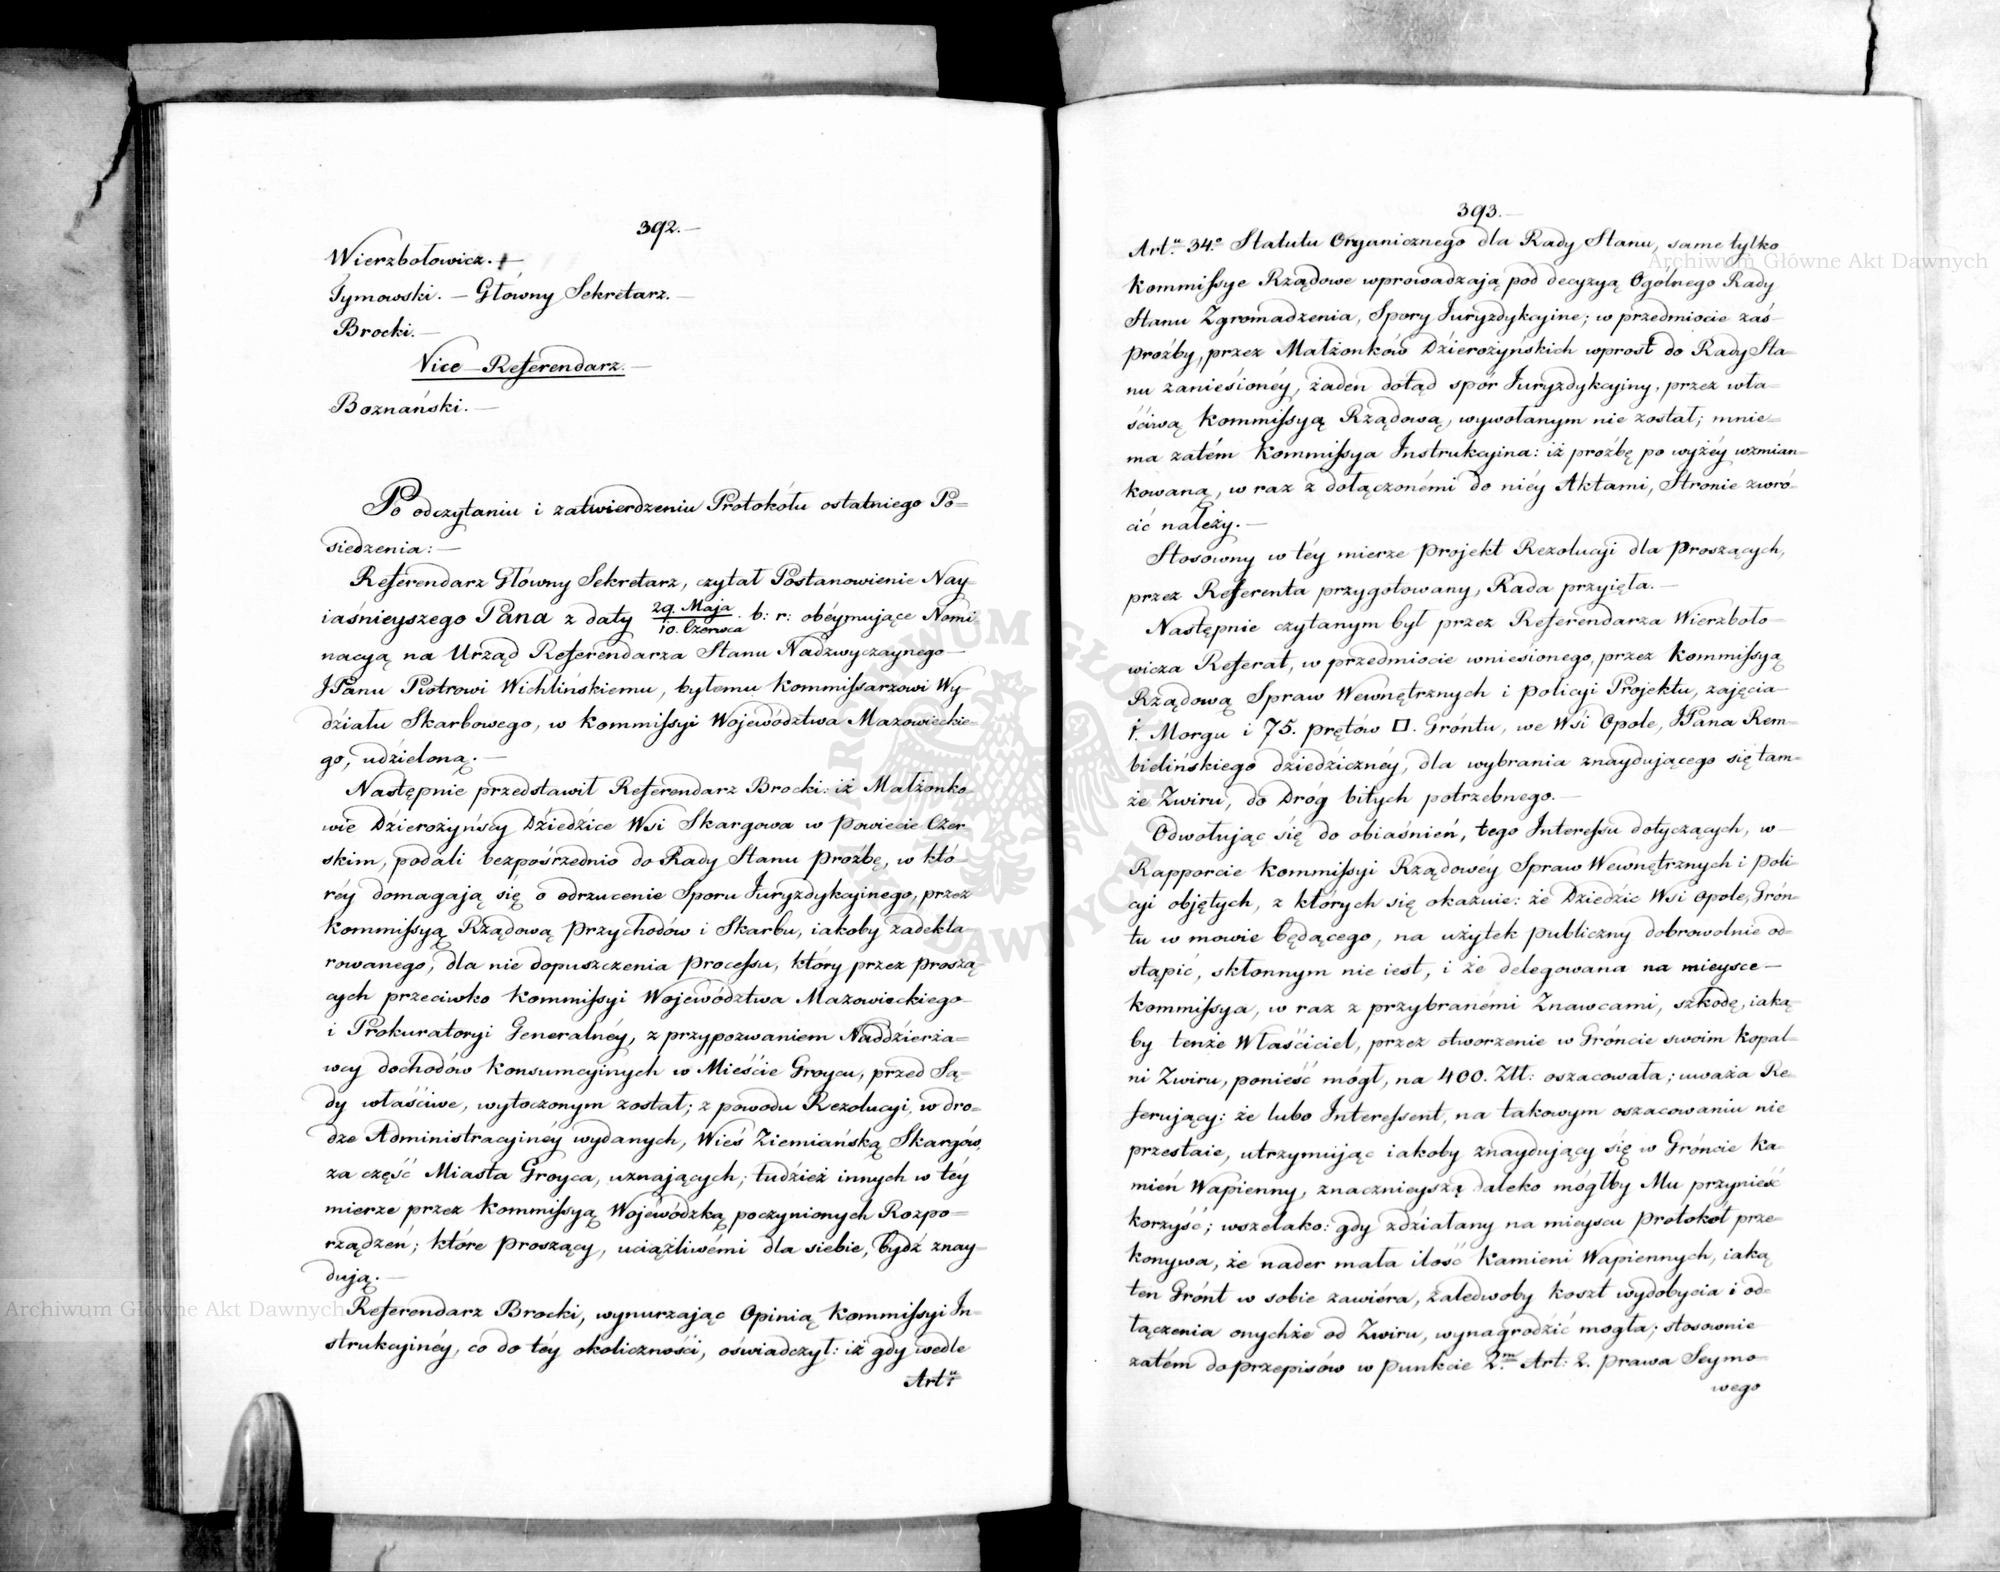 392.—
Wierzbołowicz. —
Tymowski. — Główny Sekretarz. —
Brocki. —
Vice-Referendarz. —
Boznański. —
Po odczytaniu i zatwierdzeniu Protokółu ostatniego Po=
siedzenia: —
Referendarz Główny Sekretarz, czytał Postanowienie Nay=
iaśnieyszego Pana z daty 29. Maja / 10. Czerwca b: r: obéymujące Nomi=
nacyą na Urząd Referendarza Stanu Nadzwyczaynego —
JPanu Piotrowi Wichlińskiemu, byłemu Kommissarzowi Wy=
działu Skarbowego, w Kommissyi Województwa Mazowieckie=
go, udzieloną. —
Następnie przedstawił Referendarz Brocki: iż Małżonko=
wie Dzierożyńscy Dziedzice Wsi Skargowa w Powiecie Czer=
skim, podali bezpośrzednio do Rady Stanu Proźbę, w któ=
réy domagają się o odrzucenie Sporu Juryzdykcyinego, przez
Kommissyą Rządową Przychodów i Skarbu, iakoby zadekla=
rowanego, dla nie dopuszczenia Processu, który przez Proszą=
cych przeciwko Kommissyi Województwa Mazowieckiego—
i Prokuratoryi Generalnéy, z przypozwaniem Naddzierża=
wcy dochodów Konsumcyinych w Mieście Groycu, przed Są=
dy właściwe, wytoczonym został; z powodu Rezolucyi, w dro=
dze Administracyinéy wydanych, Wieś Ziemiańską Skargów,
za część Miasta Groyca, uznających; tudzież innych w téy
mierze przez Kommissyą Wojewódzką poczynionych Rozpo=
rządzeń; które Proszący, uciążliwémi dla siebie, bydź znay=
dują. —
Referendarz Brocki, wynurzając Opinią Kommissyi In=
strukcyinéy, co do téy okoliczności, oświadczył: iż gdy wedle
Artu
393.—
Art.u 34.o Statutu Organicznego dla Rady Stanu, same tylko
Kommissye Rządowe wprowadzają pod decyzyą Ogólnego Rady
Stanu Zgromadzenia, Spory Juryzdykcyine; w przedmiocie zaś
Proźby, przez Małżonków Dzierożyńskich wprost do Rady Sta=
nu zaniesionéy, żaden dotąd spór Juryzdykcyiny, przez wła=
ściwą Kommissyą Rządową, wywołanym nie został; mnie=
ma zatém Kommissya Instrukcyina: iż proźbę po wyżéy wzmian=
kowaną, w raz z dołączonémi do niéy Aktami, Stronie zwró=
cić należy. —
Stosowny w téy mierze Projekt Rezolucyi dla Proszących,
przez Referenta przygotowany, Rada przyięła. —
Następnie czytanym był przez Referendarza Wierzboło=
wicza Referat, w przedmiocie wniesionego, przez Kommissyą
Rządową Spraw Wewnętrznych i Policyi Projektu, zajęcia—
1. Morgu i 75. prętów □. Gróntu, we Wsi Opole, JPana Rem=
bielińskiego dziedzicznéy, dla wybrania znaydującego się tam=
że Zwiru, do Dróg bitych potrzebnego. —
Odwołując się do obiaśnień, tego Interessu dotyczących, w—
Rapporcie Kommissyi Rządowéy Spraw Wewnętrznych i Poli=
cyi objętych, z których się okazuie: że Dziedzic Wsi Opole, Grón=
tu w mowie będącego, na użytek publiczny dobrowolnie od=
stąpić, skłonnym nie iest, i że delegowana na mieysce —
Kommissya, w raz z przybranémi Znawcami, szkodę, iaką=
by tenże Właściciel, przez otworzenie w Gróncie swoim Kopal=
ni Zwiru, ponieść mógł, na 400. Złł: oszacowała; uważa Re=
ferujący: że lubo Interessent, na takowym oszacowaniu nie
przestaie, utrzymując iakoby znaydujący się w Gróncie Ka=
mień Wapienny, znacznieyszą daleko mógłby Mu przynieść
korzyść; wszelako: gdy zdziałany na mieyscu Protokół prze=
konywa, że nader mała ilość Kamieni Wapiennych, iaką
ten Grónt w sobie zawiéra, zaledwoby koszt wydobycia i od=
łączenia onychże od Zwiru, wynagrodzić mogła; stosownie
zatém do przepisów w punkcie 2.m Art: 2. Prawa Seymo=
wego
Archiwum Główne Akt Dawnych
Archiwum Główne Akt Dawnych
ARCHIWUM GŁÓWNE AKT DAWNYCH